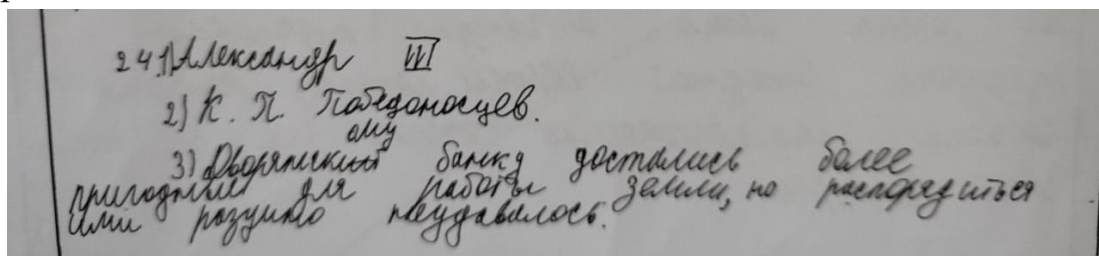 24.1) Александр III
2) К. П. Победоносцев.
ому
3) Дворянский банку достались более
пригодные для работы земли, но распорядиться
ими разумно неудавалось.